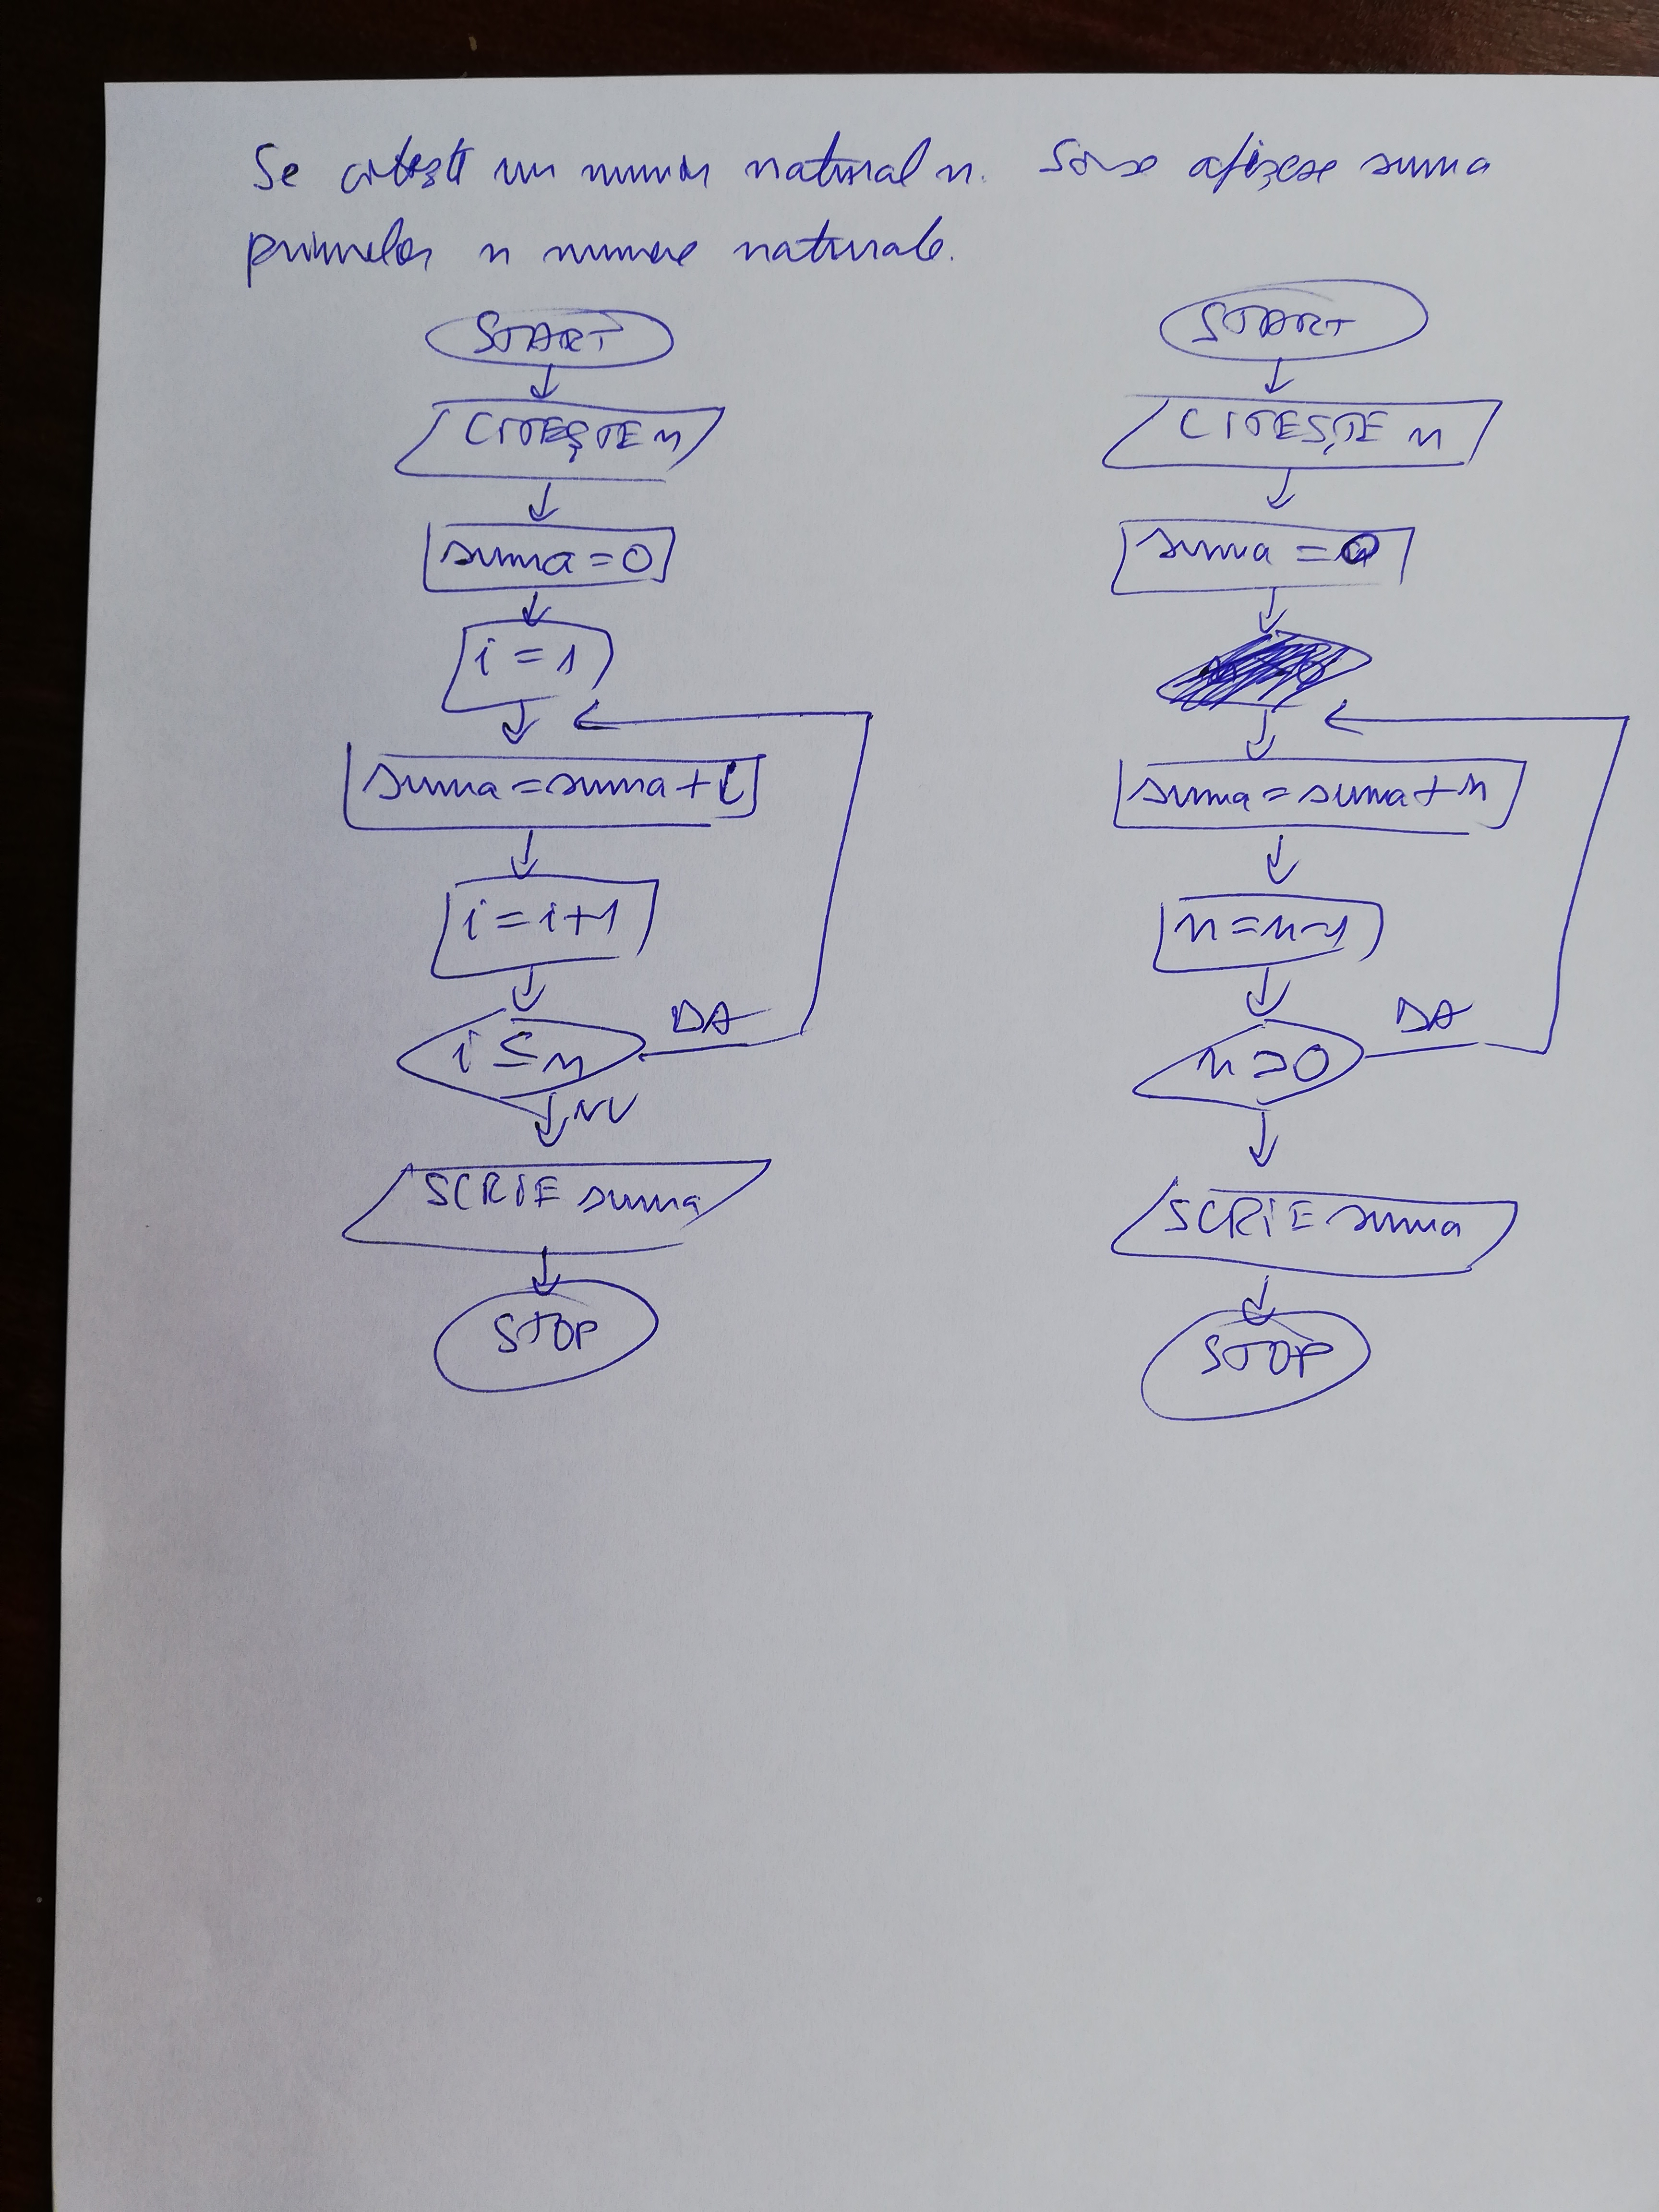 Se citește un număr natural n. Să se afișeze suma
primelor n numere naturale.
START
CITEȘTE n
suma = 0
i = 1
suma = suma + i
i = i + 1
i ≤ n
DA
NU
SCRIE suma
STOP
START
CITEȘTE n
suma = 0
suma = suma + n
n = n - 1
n > 0
DA
SCRIE suma
STOP